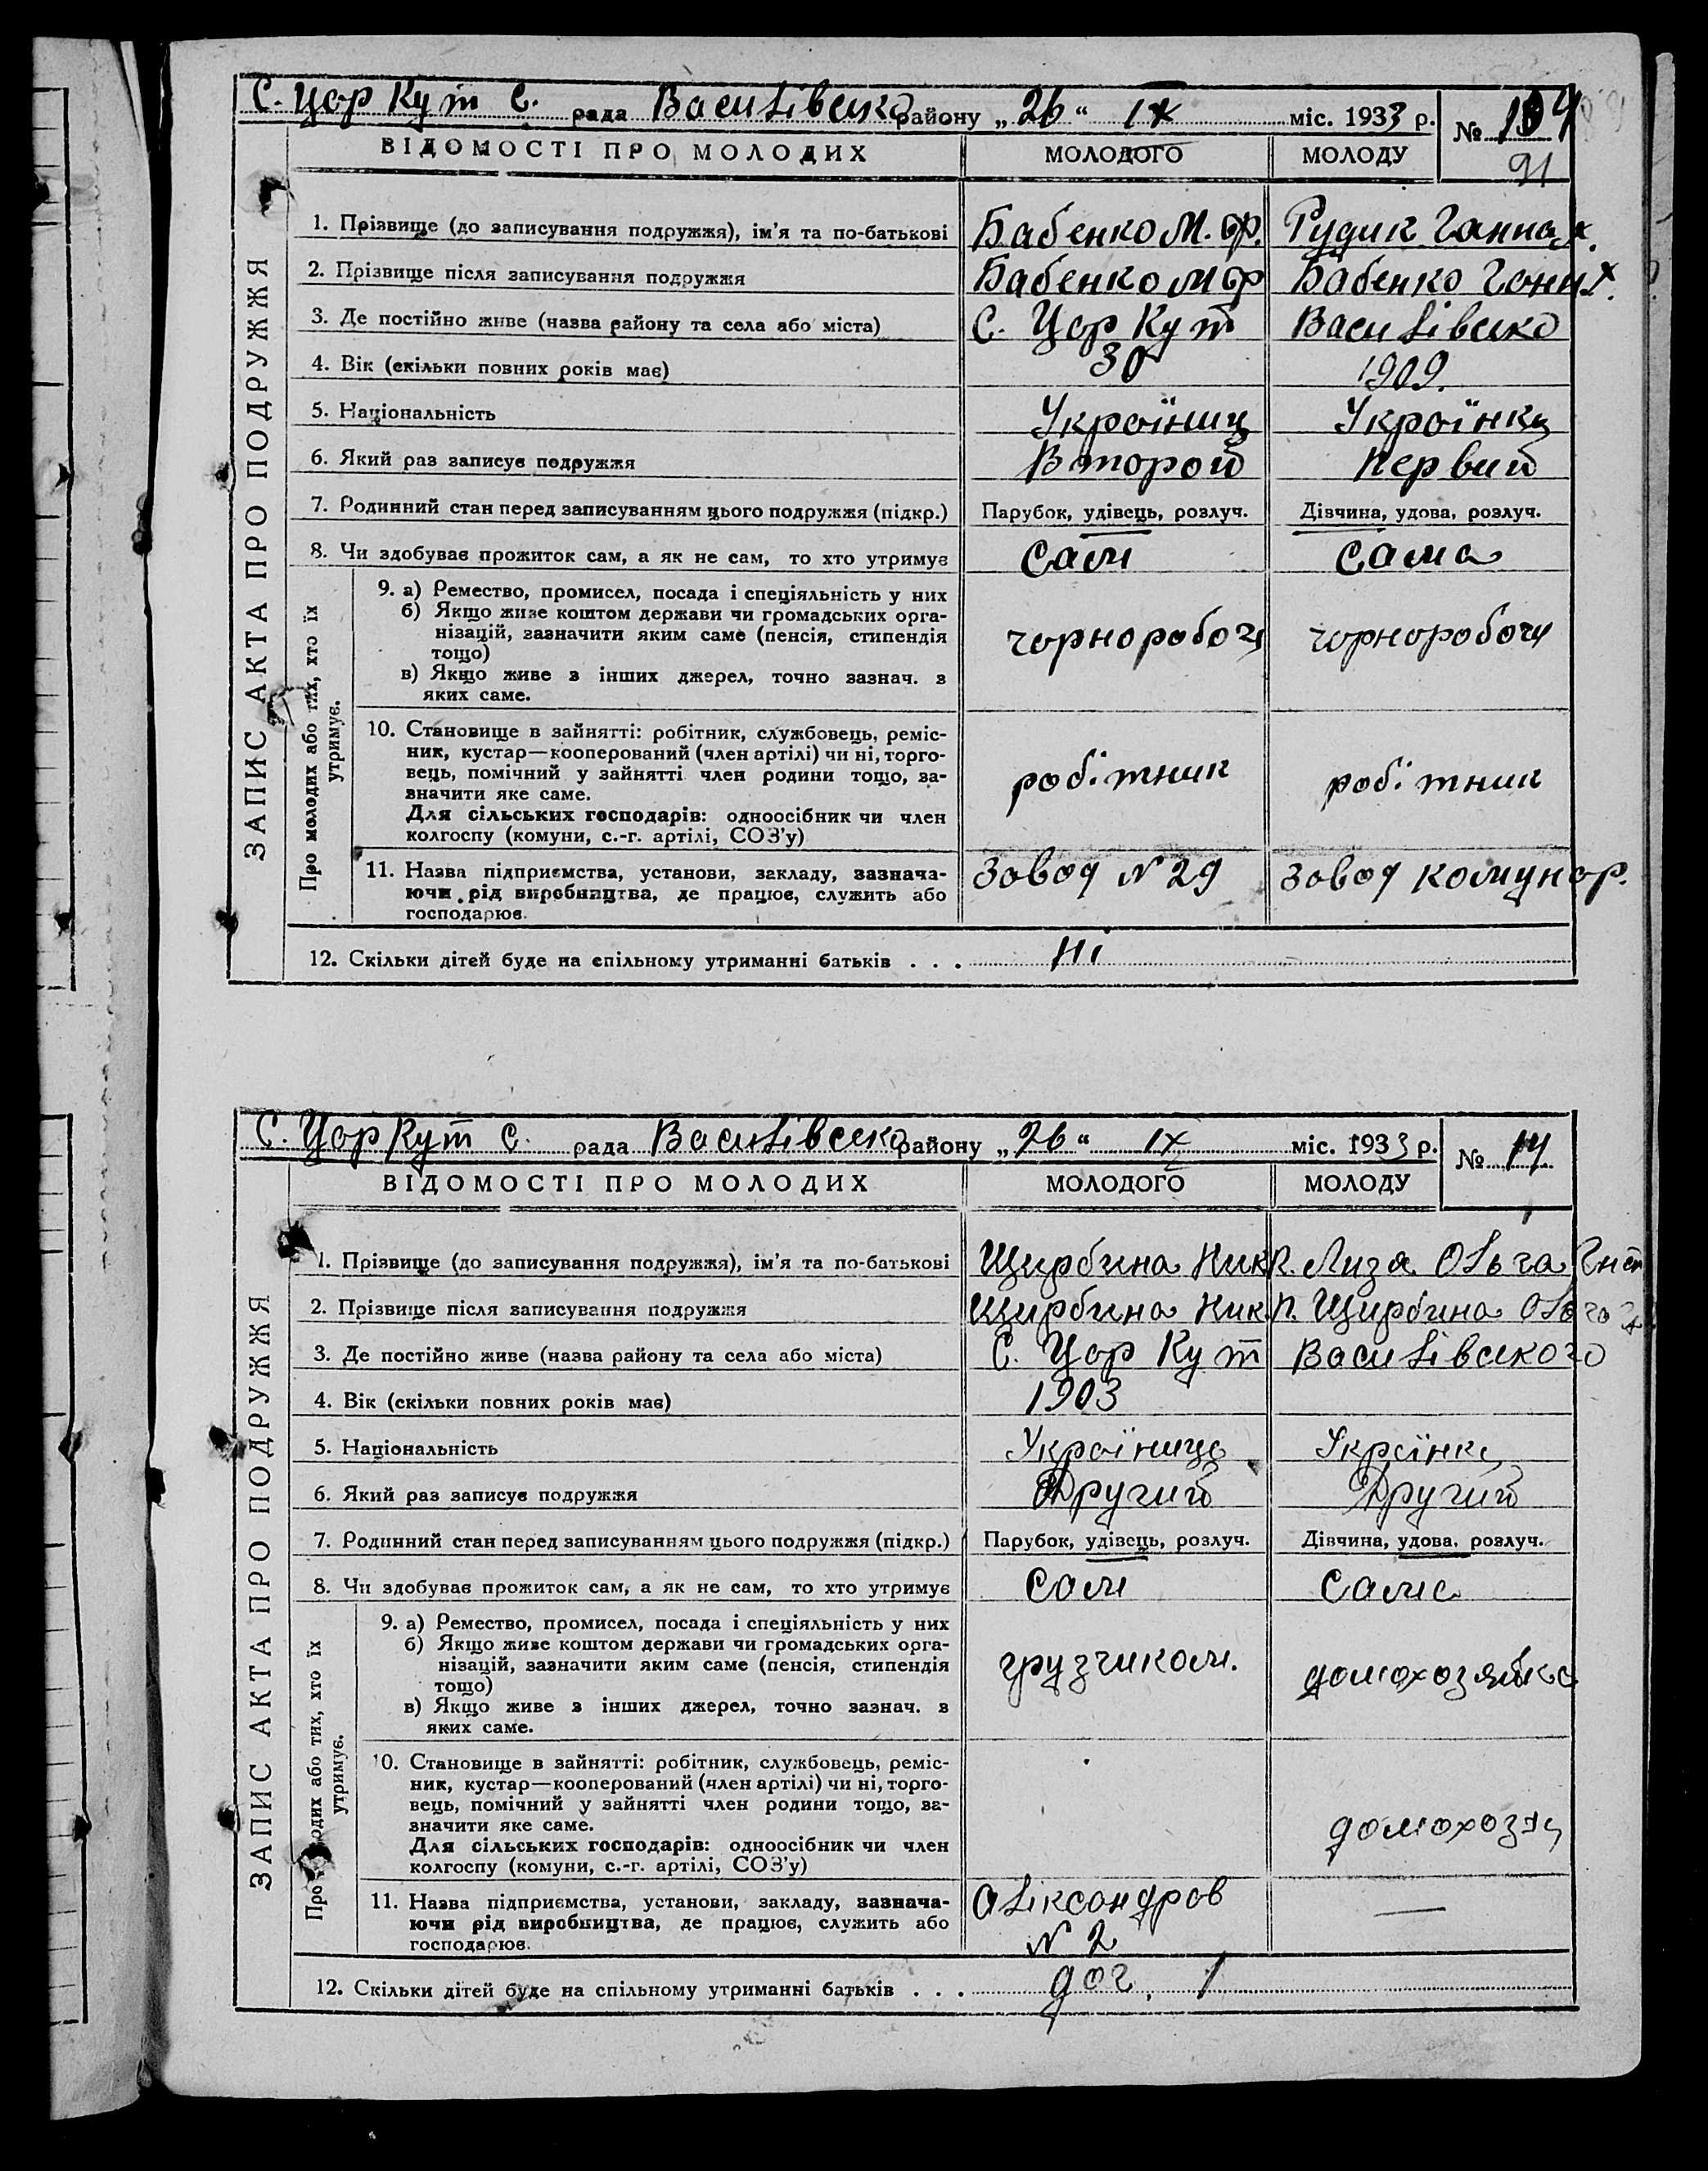 С. Цар Кут С. рада Василівсько району „26“ IX міс. 1933 р.
№
91
ВІДОМОСТІ ПРО МОЛОДИХ МОЛОДОГО МОЛОДУ
ЗАПИС АКТА ПРО ПОДРУЖЖЯ
1. Прізвище (до записування подружжя), ім’я та по-батькові Бабенко М. Ф. Рудик Ганна Х.
2. Прізвище після записування подружжя Бабенко М Ф Бабенко Ганн Х.
3. Де постійно живе (назва району та села або міста) С. Цар Кут Василівсько
4. Вік (скільки повних років має) 30 1909.
5. Національність Україниц Українка
6. Який раз записує подружжя Второй Первий
7. Родинний стан перед записуванням цього подружжя (підкр.) Парубок, удівець, розлуч. Дівчина, удова, розлуч.
8. Чи здобував прожиток сам, а як не сам, то хто утримує Сам Сама
Про молодих або тих, хто їх
утримує.
9. а) Ремество, промисел, посада і спеціяльність у них
б) Якщо живе коштом держави чи громадських орга-
нізацій, зазначити яким саме (пенсія, стипендія
тощо)
в) Якщо живе з інших джерел, точно зазнач. з
яких саме.
чорноробоч чорноробоч
10. Становище в зайнятті: робітник, службовець, реміс-
ник, кустар—кооперований (член артілі) чи ні, торго-
вець, помічний у зайнятті член родини тощо, за-
значити яке саме.
Для сільських господарів: одноосібник чи член
колгоспу (комуни, с.-г. артілі, СОЗ’у)
робітник робітник
11. Назва підприємства, установи, закладу, зазнача-
ючи рід виробництва, де працює, служить або
господарює.
Завод N 29 Завод комунар.
12. Скільки дітей буде на спільному утриманні батьків . . . Ні
С. Цар Кут С. рада Василівсько району „26“ IX міс. 1933 р.
№ 14
ВІДОМОСТІ ПРО МОЛОДИХ МОЛОДОГО МОЛОДУ
ЗАПИС АКТА ПРО ПОДРУЖЖЯ
1. Прізвище (до записування подружжя), ім’я та по-батькові Щирбина Ник П. Лиза Ольга Гнат
2. Прізвище після записування подружжя Щирбина Ник. П. Щирбина Ольга
3. Де постійно живе (назва району та села або міста) С. Цар Кут Василівского
4. Вік (скільки повних років має) 1903
5. Національність Україниць Українка
6. Який раз записує подружжя Другий Другий
7. Родинний стан перед записуванням цього подружжя (підкр.) Парубок, удівець, розлуч. Дівчина, удова, розлуч.
8. Чи здобував прожиток сам, а як не сам, то хто утримує Сам Сама
Про молодих або тих, хто їх
утримує.
9. а) Ремество, промисел, посада і спеціяльність у них
б) Якщо живе коштом держави чи громадських орга-
нізацій, зазначити яким саме (пенсія, стипендія
тощо)
в) Якщо живе з інших джерел, точно зазнач. з
яких саме.
грузчиком. домохозяйка
10. Становище в зайнятті: робітник, службовець, реміс-
ник, кустар—кооперований (член артілі) чи ні, торго-
вець, помічний у зайнятті член родини тощо, за-
значити яке саме.
Для сільських господарів: одноосібник чи член
колгоспу (комуни, с.-г. артілі, СОЗ’у)
домохозяц
11. Назва підприємства, установи, закладу, зазнача-
ючи рід виробництва, де працює, служить або
господарює.
Аліксандров —
N 2
12. Скільки дітей буде на спільному утриманні батьків . . . доч. 1